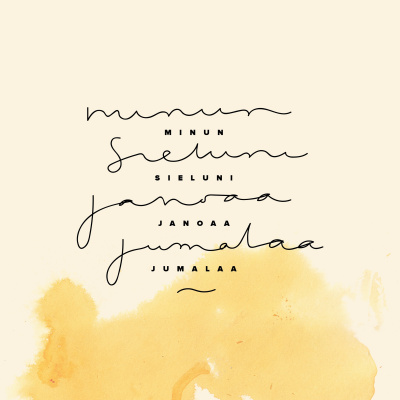 minun
MINUN
Sieluni
SIELUNI
janoaa
JANOAA
jumalaa
JUMALAA